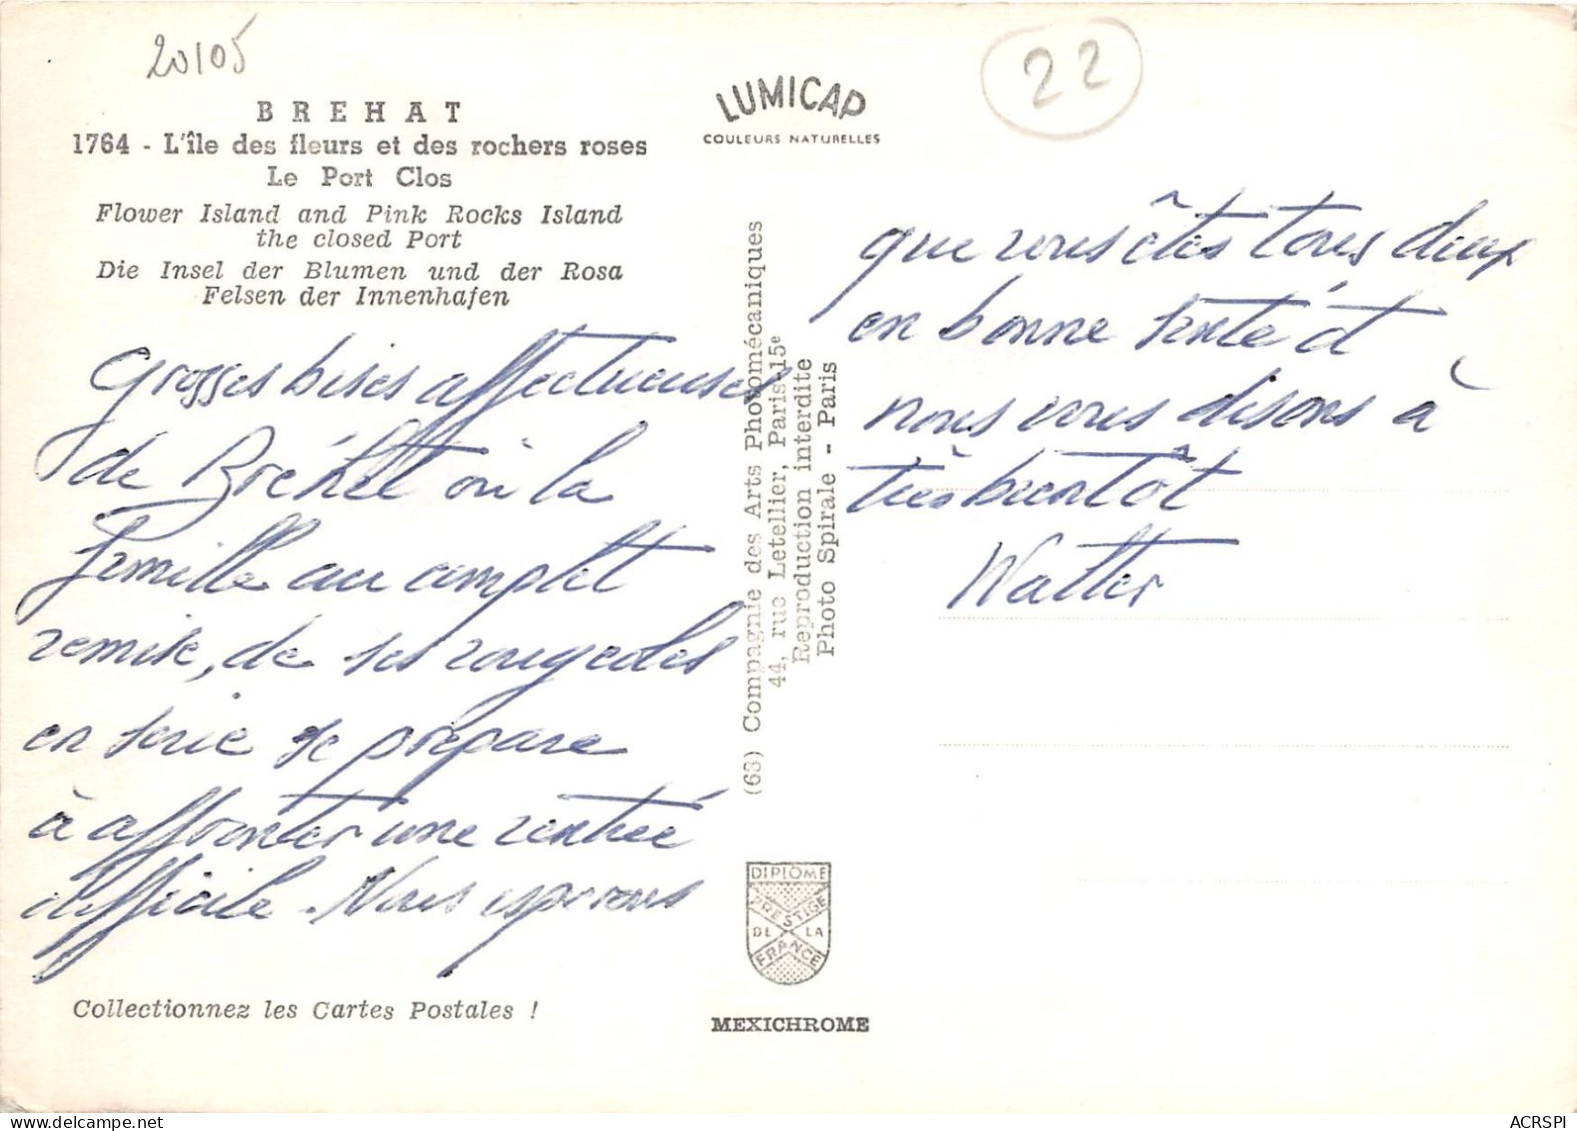 20105
22
BREHAT
1764 - L'île des fleurs et des rochers roses
Le Port Clos
Flower Island and Pink Rocks Island
the closed Port
Die Insel der Blumen und der Rosa
Felsen der Innenhafen
LUMICAP
COULEURS NATURELLES
Grosses bises affectueuses
de Bréhat où la
famille au complet
remise, de ses rougeoles
en série se prépare
à affronter une rentrée
difficile. Nous espérons
que vous êtes tous deux
en bonne santé et
nous vous disons à
très bientôt
Walter
(63) Compagnie des Arts Photomécaniques
44, rue Letellier, Paris-15e
Reproduction interdite
Photo Spirale - Paris
DIPLOME
PRESTIGE
DE LA
FRANCE
Collectionnez les Cartes Postales !
MEXICHROME
delcampe.net
ACRSPI